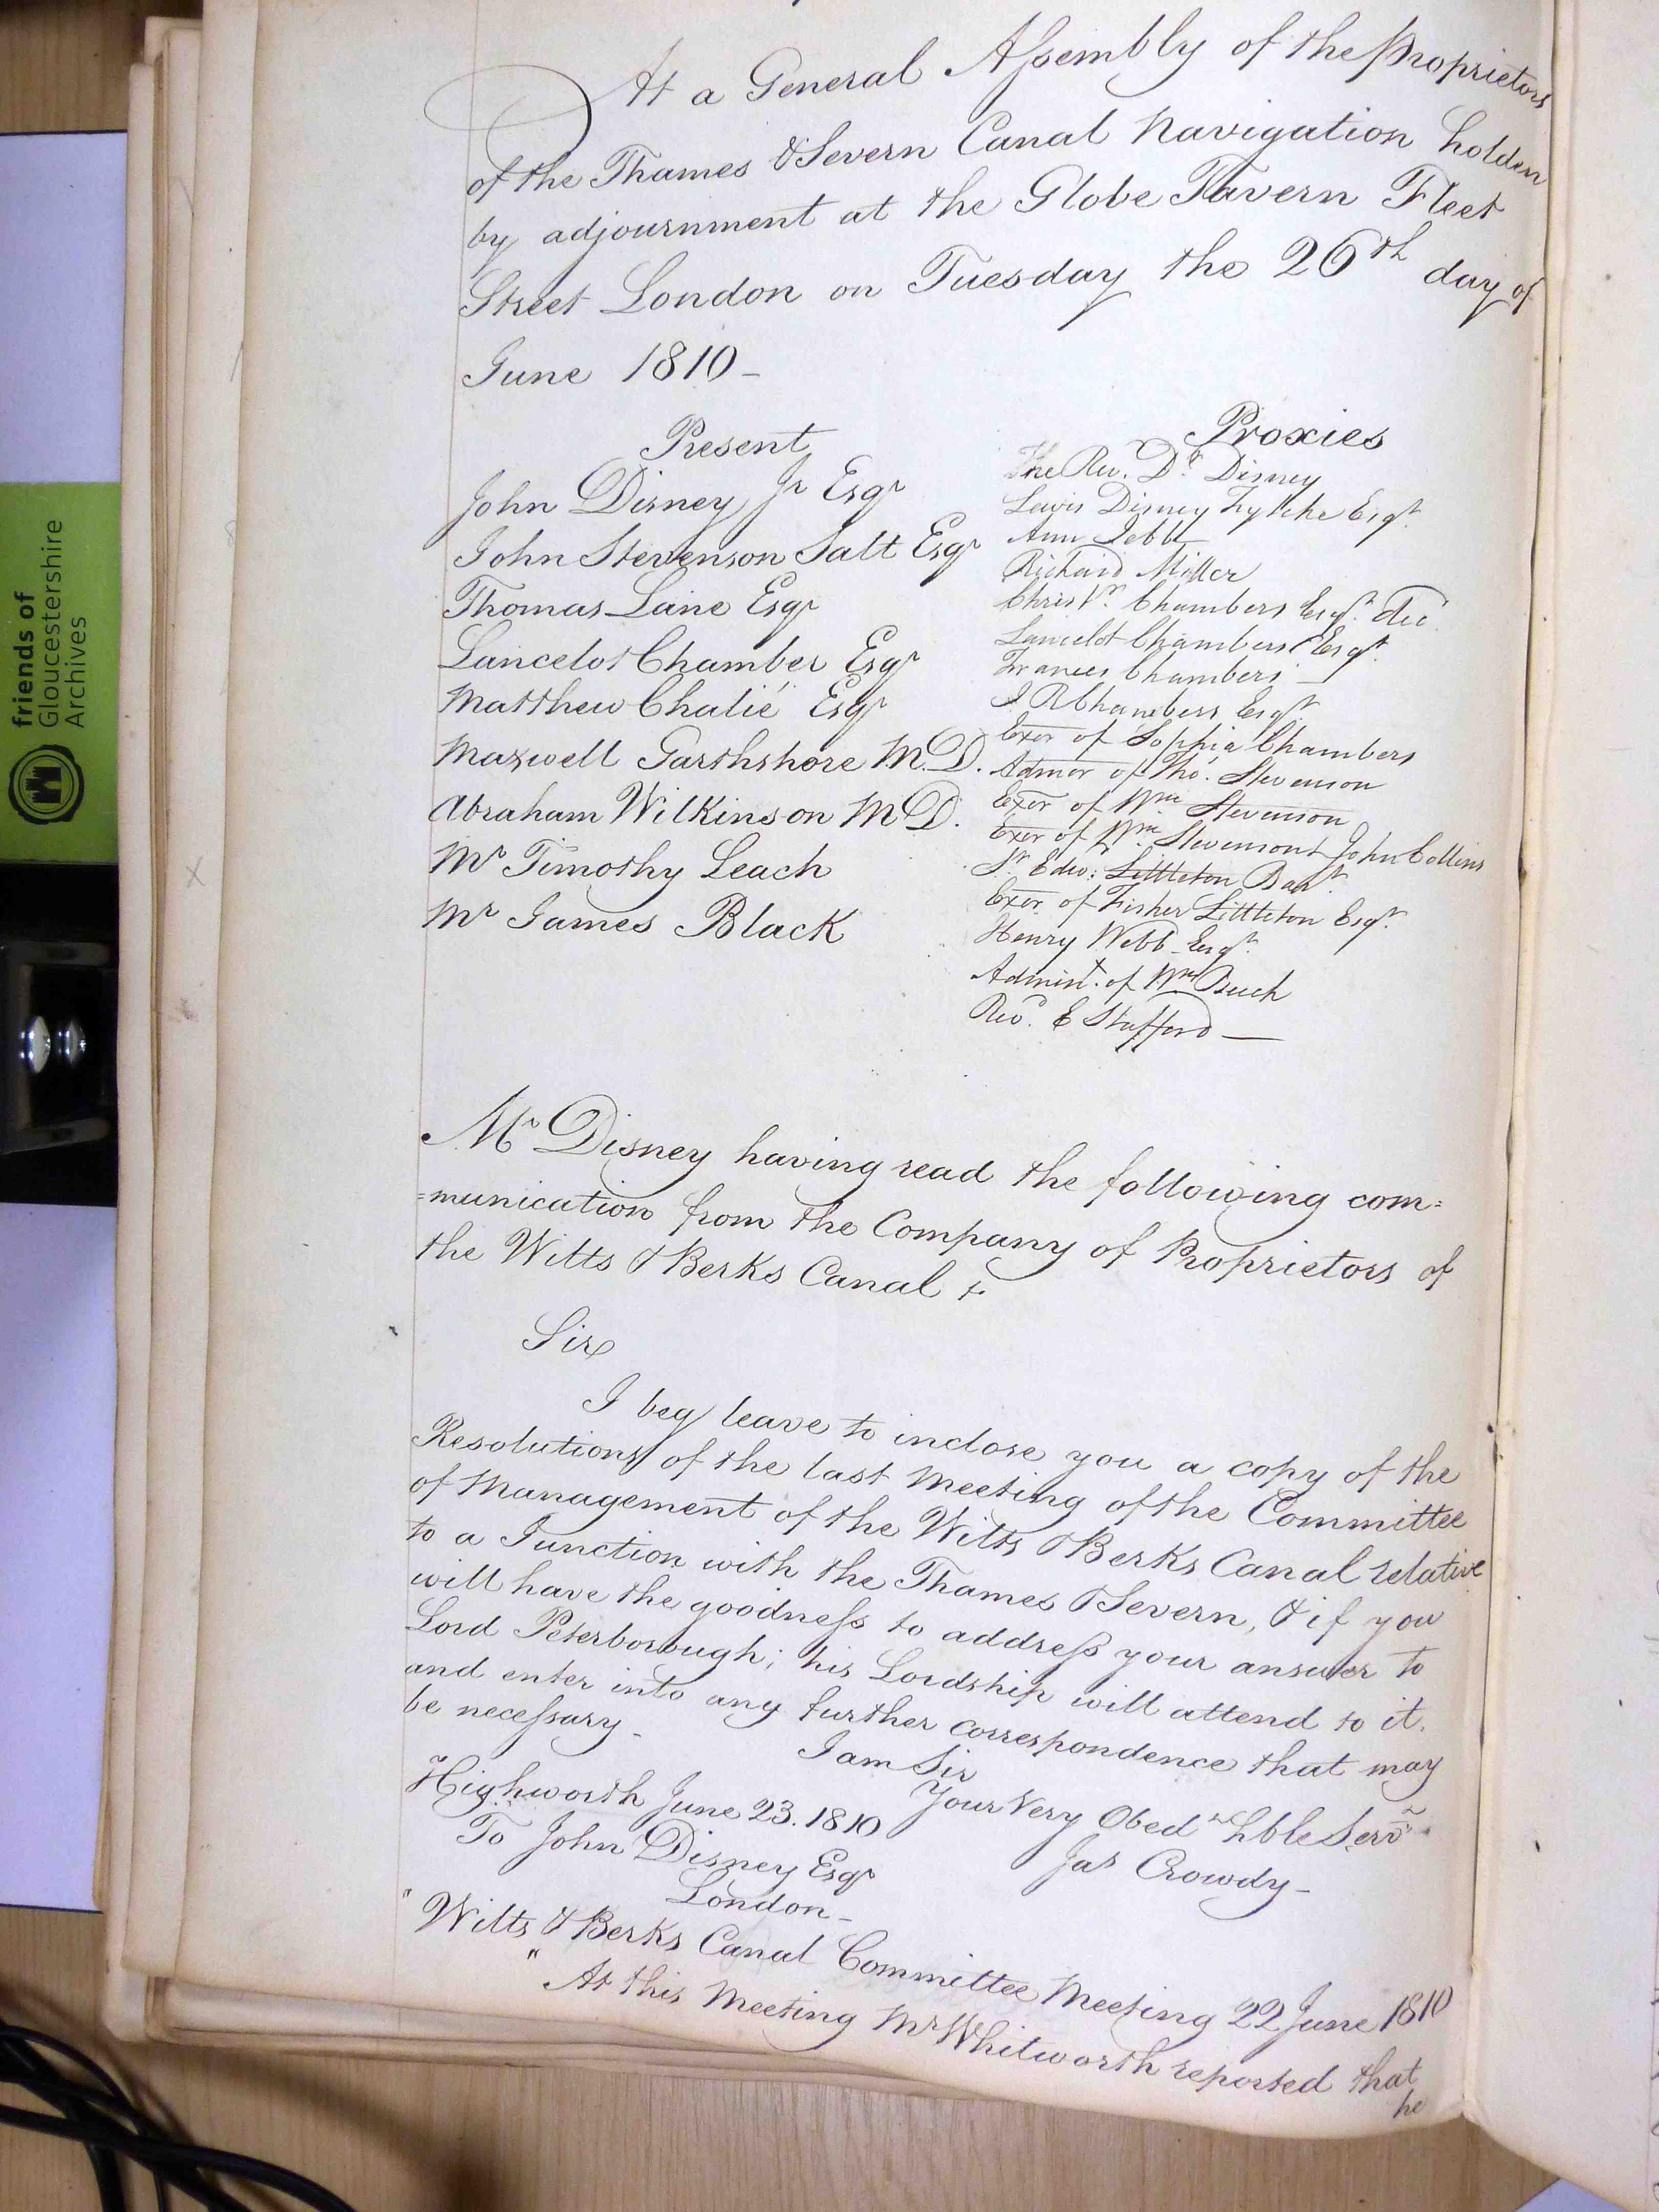 At a General Assembly of the Proprietors
of the Thames & Severn Canal Navigation holden
by adjournment at the Globe Tavern Fleet
Street London on Tuesday the 26th day of
June 1810 -
Present
John Disney Jr Esqr
John Stevenson Salt Esqr
Thomas Lane Esqr
Lancelot Chamber Esqr
Matthew Chalié Esqr
Maxwell Garthshore M.D.
Abraham Wilkinson M D.
Mr Timothy Leach
Mr James Black
Proxies
The Rev. Dr Disney
Lewis Disney Fytche Esqr.
Ann Jebb
Richard Miller
Christr. Chambers Esqr. Dec
Lancelot Chambers Esqr.
Frances Chambers
J R Chambers Esqr
Exor of Sophia Chambers
Admor of Tho. Stevenson
Exor of Wm Stevenson
Exor of Wm Stevenson & John Collins
Sr Edw: Littleton Bart.
Exor. of Fisher Littleton Esqr.
Henry Webb Esqr.
Administ. of Wm Buch
Revd. E Stafford
Mr Disney having read the following com=
=munication from the Company of Proprietors of
the Wilts & Berks Canal
Sir
I beg leave to inclose you a copy of the
Resolutions of the last Meeting of the Committee
of Management of the Wilts & Berks Canal relative
to a Junction with the Thames & Severn, & if you
will have the goodness to address your answer to
Lord Peterborough; his Lordship will attend to it.
and enter into any further correspondence that may
be necessary -
I am Sir
Your Very Obedt Hble Servt
Jas Crowdy -
Highworth June 23. 1810
To John Disney Esqr
London -
" Wilts & Berks Canal Committee Meeting 22 June 1810
" At this Meeting Mr Whitworth reported that
he
friends of
Gloucestershire
Archives